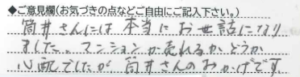 ◆ご意見欄(お気づきの点などご自由にご記入下さい。)
筒井さんには本当にお世話になり
ました。マンションが売れるかどうか
心配でしたが筒井さんのおかげです。